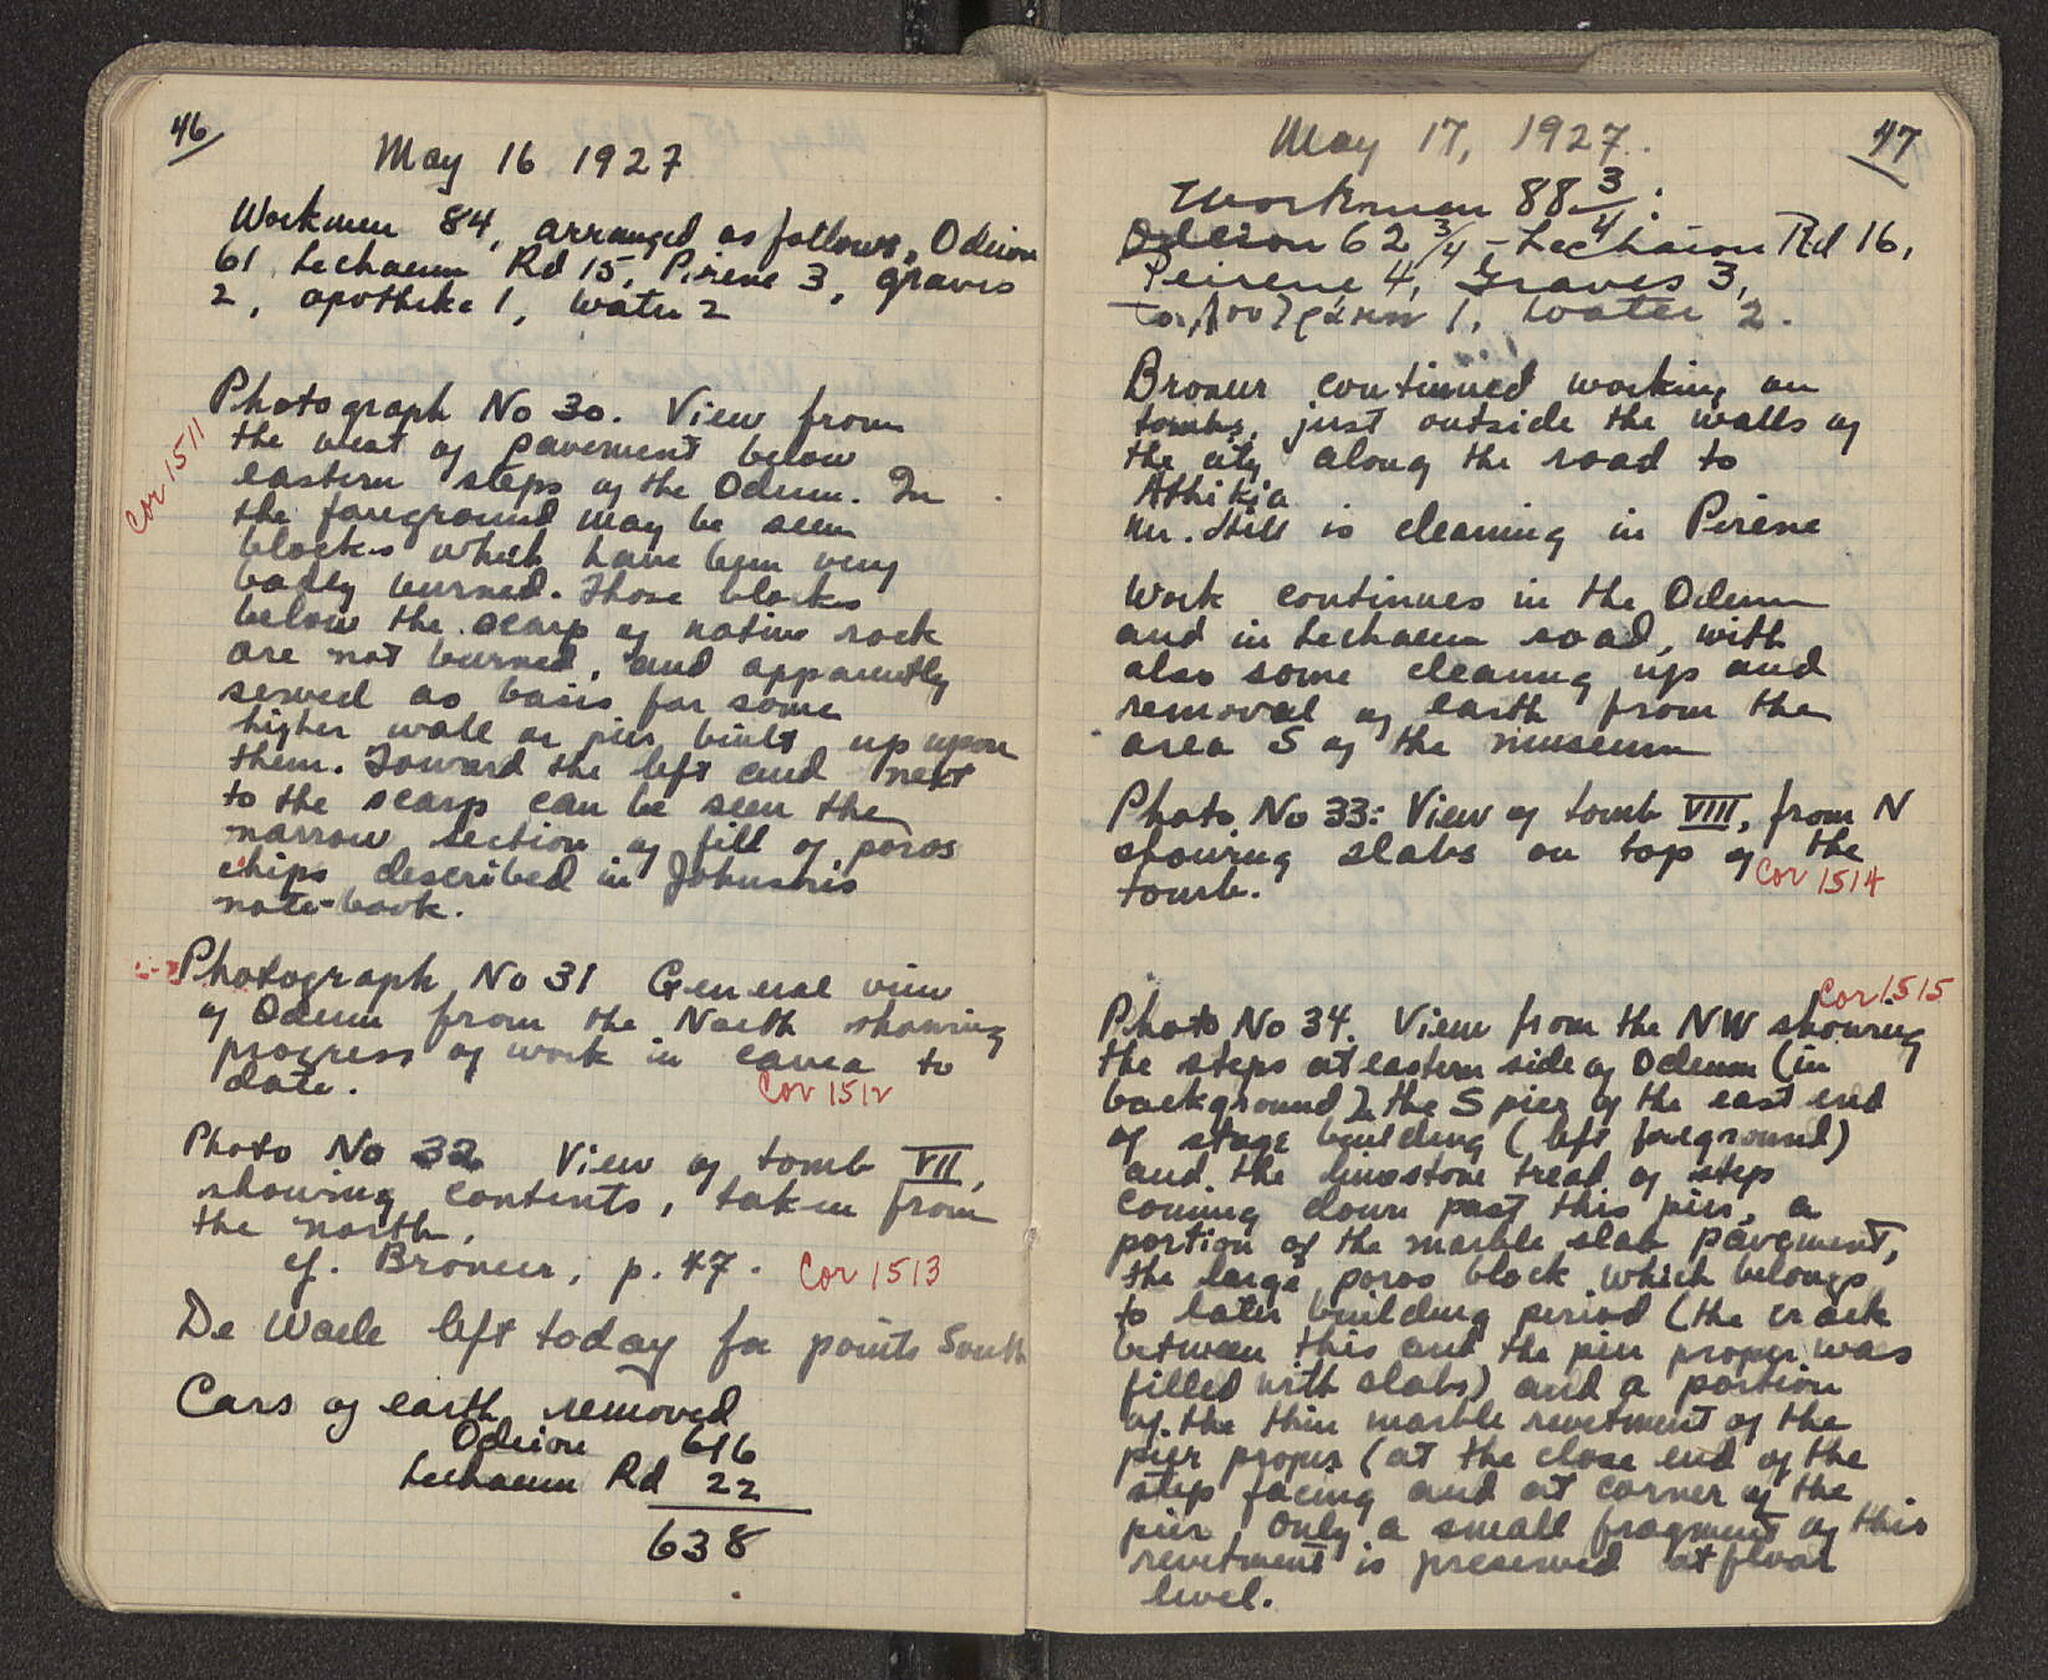 46
May 16 1927
Workmen 84, arranged as follows, Odeion
61, Lechaeum Rd 15, Pirene 3, graves
2, apotheke 1, water 2
Cor 1511
Photograph No 30. View from
the west of pavement below
eastern steps of the Odeum. In
the foreground may be seen
blocks which have been very
badly burned. Those blocks
below the scarp of native rock
are not burned, and apparently
served as basis for some
higher wall or pier built up upon
them. Toward the left and next
to the scarp can be seen the
narrow section of fill of poros
chips described in Johnson's
note-book.
Photograph No 31 General view
of Odeum from the North showing
progress of work in cavea to
date.
Cor 1512
Photo No 32 View of tomb VII,
showing contents, taken from
the north.
cf. Broneer, p. 47. Cor 1513
De Waele left today for points South
Cars of earth removed
Odeion 616
Lechaeum Rd 22
638
47
May 17, 1927.
Workmen 88 3/4:
Odeion 62 3/4 - Lechaion Rd 16,
Peirene 4, Graves 3,
1, Water 2.
Broneer continued working on
tombs, just outside the walls of
the city along the road to
Athikia
Mr. Hill is cleaning in Pirene
Work continues in the Odeum
and in Lechaeum road, with
also some cleaning up and
removal of earth from the
area S of the museum
Photo No 33: View of tomb VIII, from N
showing slabs on top of the
tomb.
Cor 1514
Cor 1515
Photo No 34. View from the NW showing
the steps at eastern side of Odeum (in
background), the S pier of the east end
of stage building (left foreground)
and the limestone tread of step
coming down past this pier, a
portion of the marble slab pavement,
the large poros block which belongs
to later building period (the crack
between this and the pier proper was
filled with slabs) and a portion
of the thin marble revetment of the
pier proper (at the close end of the
step facing and at corner of the
pier, only a small fragment of this
revetment is preserved at floor
level.